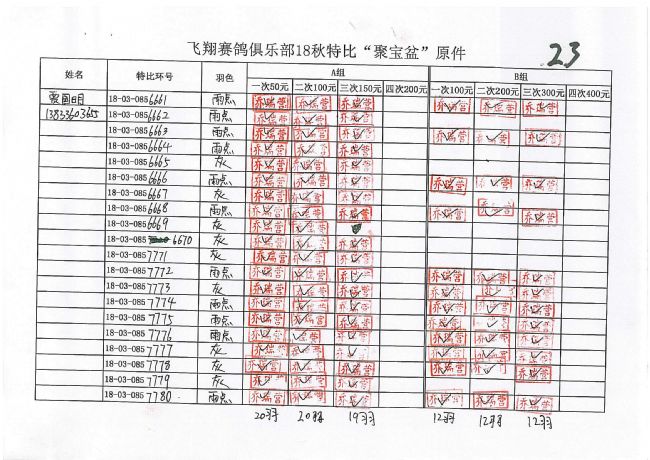 飞翔赛鸽俱乐部18秋特比“聚宝盆”原件
23
姓名 特比环号 羽色 A组 B组
一次50元 二次100元 三次150元 四次200元 一次100元 二次200元 三次300元 四次400元
18-03-0856661 雨点 乔瑞营 乔瑞营 乔瑞营 乔瑞营 乔瑞营 乔瑞营
13833603655 18-03-0856662 雨点 乔瑞营 乔瑞营 乔瑞营
18-03-0856663 雨点 乔瑞营 乔瑞营 乔瑞营 乔瑞营 乔瑞营 乔瑞营
18-03-0856664 雨点 乔瑞营 乔瑞营 乔瑞营
18-03-0856665 灰 乔瑞营 乔瑞营 乔瑞营
18-03-0856666 雨点 乔瑞营 乔瑞营 乔瑞营 乔瑞营 乔瑞营 乔瑞营
18-03-0856667 灰 乔瑞营 乔瑞营 乔瑞营
18-03-0856668 雨点 乔瑞营 乔瑞营 乔瑞营 乔瑞营 乔瑞营 乔瑞营
18-03-0856669 灰 乔瑞营 乔瑞营
18-03-085 6670 灰 乔瑞营 乔瑞营 乔瑞营
18-03-0857771 灰 乔瑞营 乔瑞营 乔瑞营
18-03-0857772 雨点 乔瑞营 乔瑞营 乔瑞营 乔瑞营 乔瑞营 乔瑞营
18-03-0857773 灰 乔瑞营 乔瑞营 乔瑞营 乔瑞营 乔瑞营 乔瑞营
18-03-0857774 雨点 乔瑞营 乔瑞营 乔瑞营 乔瑞营 乔瑞营 乔瑞营
18-03-0857775 雨点 乔瑞营 乔瑞营 乔瑞营 乔瑞营 乔瑞营 乔瑞营
18-03-0857776 雨点 乔瑞营 乔瑞营 乔瑞营 乔瑞营 乔瑞营 乔瑞营
18-03-0857777 灰 乔瑞营 乔瑞营 乔瑞营 乔瑞营 乔瑞营 乔瑞营
18-03-0857778 灰 乔瑞营 乔瑞营 乔瑞营 乔瑞营 乔瑞营 乔瑞营
18-03-0857779 灰 乔瑞营 乔瑞营 乔瑞营
18-03-0857780 雨点 乔瑞营 乔瑞营 乔瑞营 乔瑞营 乔瑞营 乔瑞营
20羽 20羽 19羽 12羽 12羽 12羽